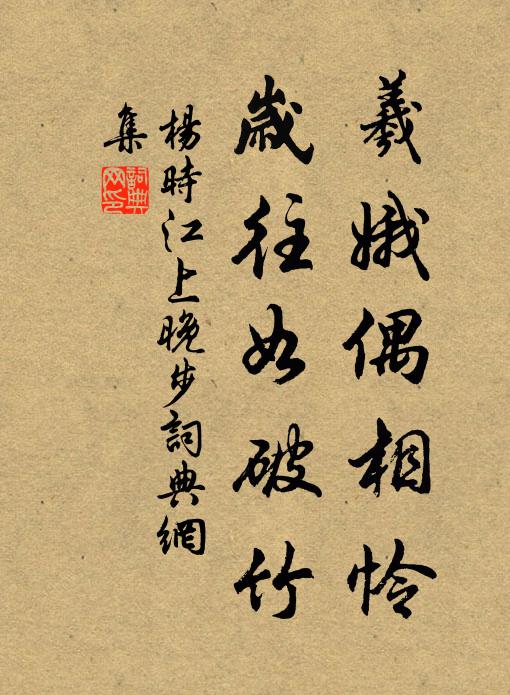 羲娥偶相怜
岁往如破竹
楊時江上晚步詞典網
集
詞典
网印